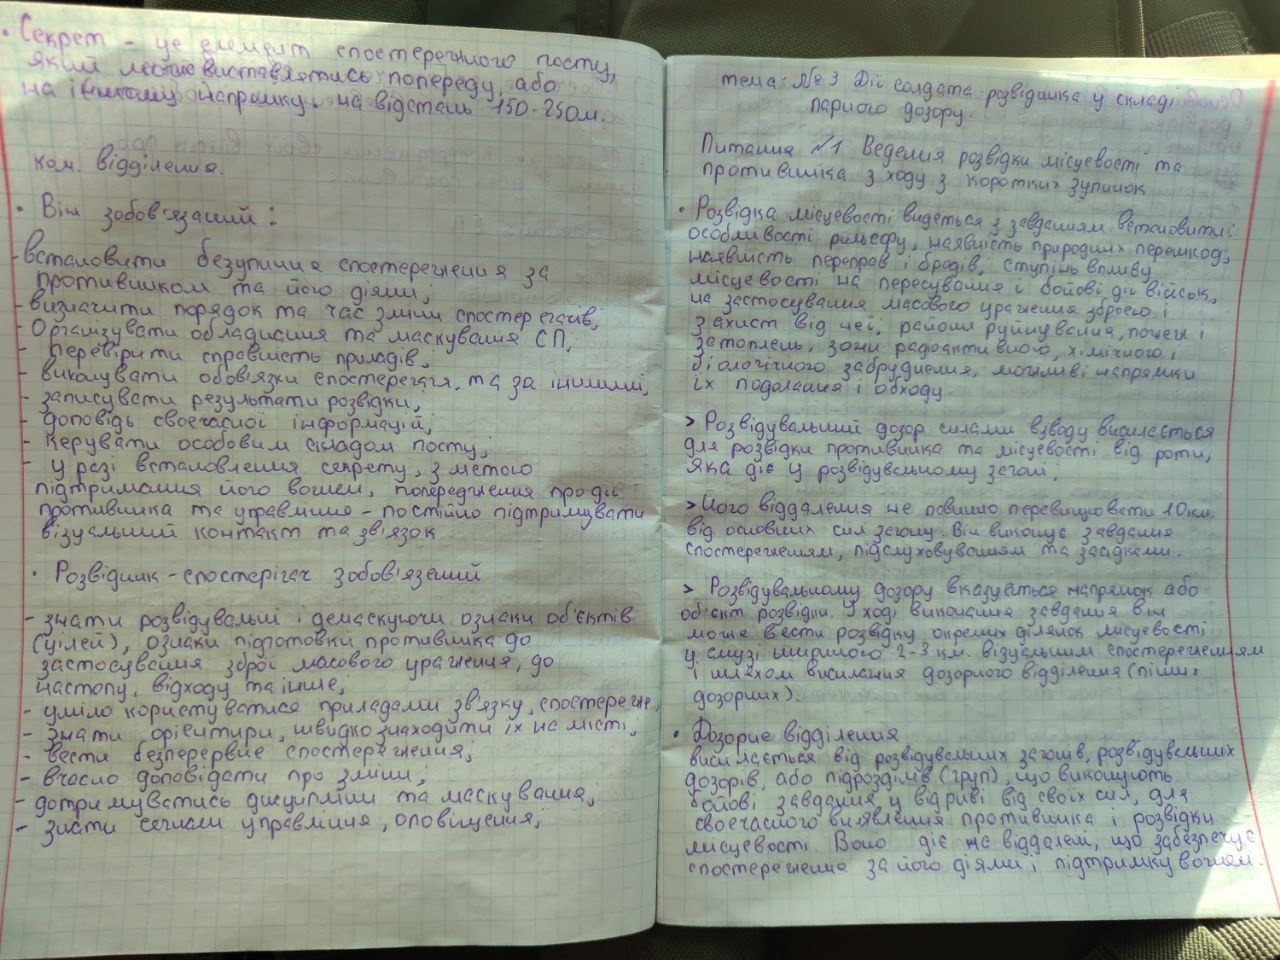 • Секрет - це елемент спостережного посту,
який може виставлятись попереду, або
на іншому напрямку, на відстань 150-250м.
ком. відділення.
• Він зобов'язаний:
- встановити безупинне спостереження за
противником та його діями;
- визначити порядок та час зміни спостерегачів;
- Організувати обладнання та маскування СП;
- перевірити справність приладів;
- виконувати обов'язки спостерегача, та за іншими;
- записувати результати розвідки;
- доповідь своєчасної інформації;
- керувати особовим складом посту;
- у разі встановлення секрету, з метою
підтримання його вогнем, попередження про дії
противника та управління - постійно підтримувати
візуальний контакт та зв'язок
• Розвідник - спостерігач зобов'язаний
- знати розвідувальні і демаскуючи ознаки об'єктів
(цілей), ознаки підготовки противника до
застосування зброї масового ураження, до
наступу, відходу та інше;
- уміло користуватися приладами зв'язку, спостереже;
- знати орієнтири, швидко знаходити їх на місті;
- вести безперервне спостереження;
- вчасно доповідати про зміни;
- дотримуватись дисципліни та маскування;
- знати сигнали управління, оповіщення;
тема: №3 Дії солдата розвідника у складі
парного дозору.
Питання №1 Ведення розвідки місцевості та
противника з ходу з коротких зупинок
• Розвідка місцевості видеться з завданням встановити:
особливості рильєфу, наявність природних перешкод,
наявність переправ і бродів, ступінь впливу
місцевості на пересування і бойові дії військ,
на застосування масового ураження зброєю і
захист від неї, райони руйнування, пожеж і
затоплень, зони радоактивного, хімічного і
біологічного забруднення, можливі напрямки
їх подолання і обходу.
> Розвідувальний дозор силами взводу висилається
для розвідки противника та місцевості від роти,
яка діє у розвідувальному загоні;
> Його віддалення не повинно перевищювати 10км.
від основних сил загону. Він виконує завдання
спостереженням, підслуховуванням та засідками.
> Розвідувальному дозору вказується напрямок або
об'єкт розвідки. У ході виконання завдання він
може вести розвідку окремих ділянок місцевості
у смузі шириною 2-3 км. візуальним спостереженням
і шляхом висилання дозорного відділення (піших
дозорних).
• Дозорне відділення
висилається від розвідувальних загонів, розвідувальних
дозорів, або підрозділів (груп), що виконують
бойові завдання у відриві від своїх сил, для
своєчасного виявлення противника і розвідки
місцевості. Воно діє на віддалені, що забезпечує
спостереження за його діями і підтримку вогнем.